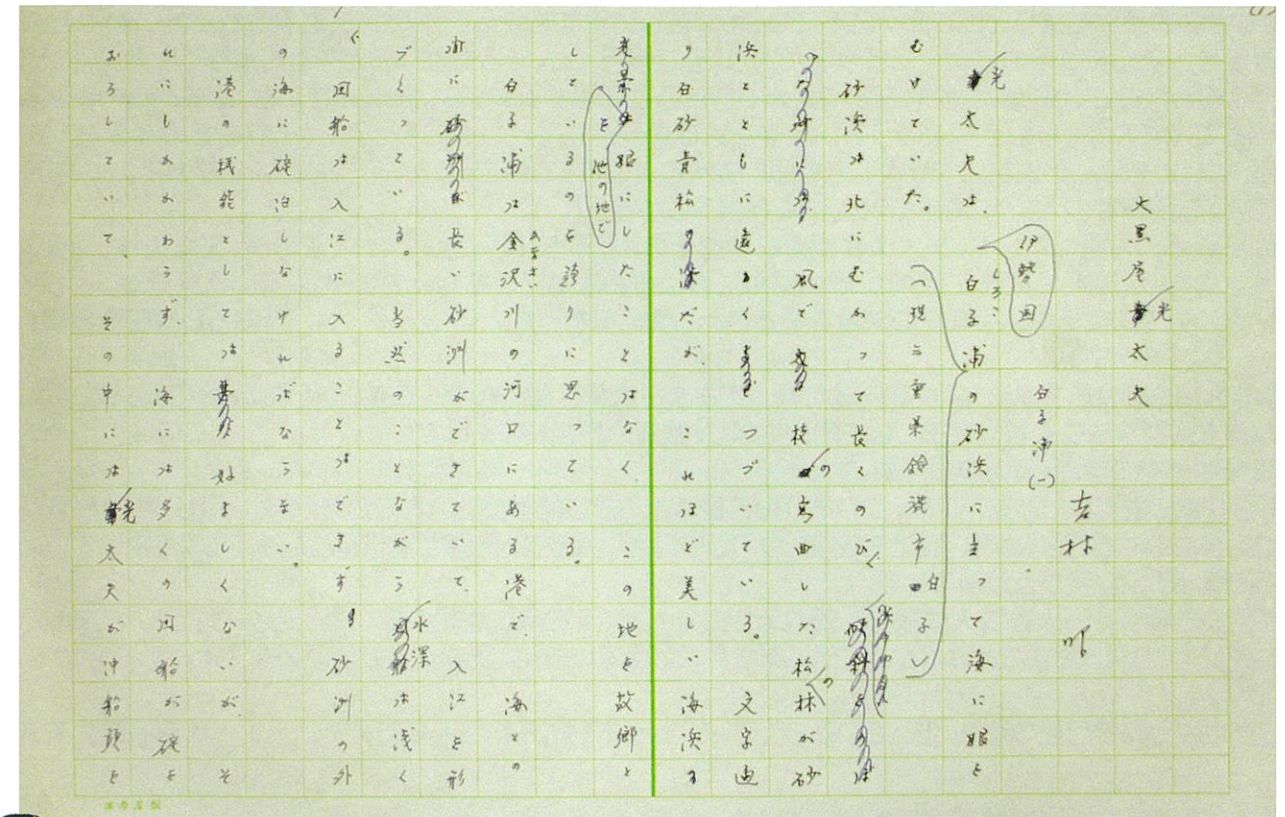 大黒屋光太夫
白子沖(一)
吉村 昭
光太夫は、伊勢国白子浦の砂浜に立って海に眼を
しろこ
むけていた。(現三重県鈴鹿市白子)
砂浜は北にむかって長くのび、
風で枝の彎曲した松林が砂
浜とともに遠くつづいている。文字通
り白砂青松だが、これほど美しい海浜
を他の地で眼にしたことはなく、この地を故郷と
しているのを誇りに思っている。
白子浦は金沢川の河口にある港で、海との
間に長い砂洲ができていて、入江を形
づくっている。当然のことながら水深は浅く
、回船は入江に入ることはできず、砂洲の外
の海に碇泊しなければならない。
港の機能としては好ましくないが、そ
れにもかかわらず、海には多くの回船が碇を
おろしていて、その中には光太夫が沖船頭を